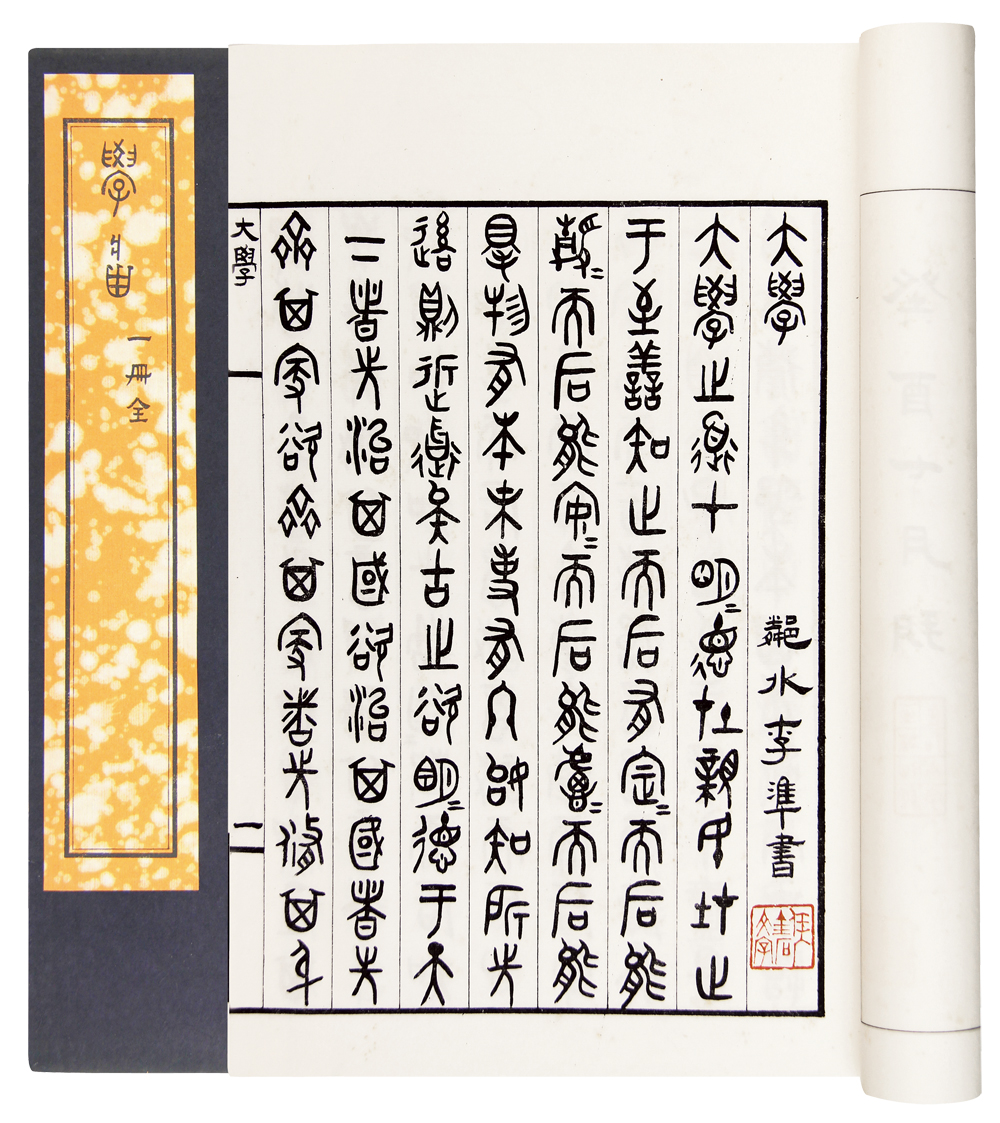 學庸
一冊全
大學
鄰水李準書
大學之道在明=德在親民在止
于至善知止而后有定=而后能
靜=而后能安=而后能慮=而后能
得物有本末事有終始知所先
後則近道矣古之欲明=德于天
下者先治其國欲治其國者先
齊其家欲齊其家者先修其身
大學
一